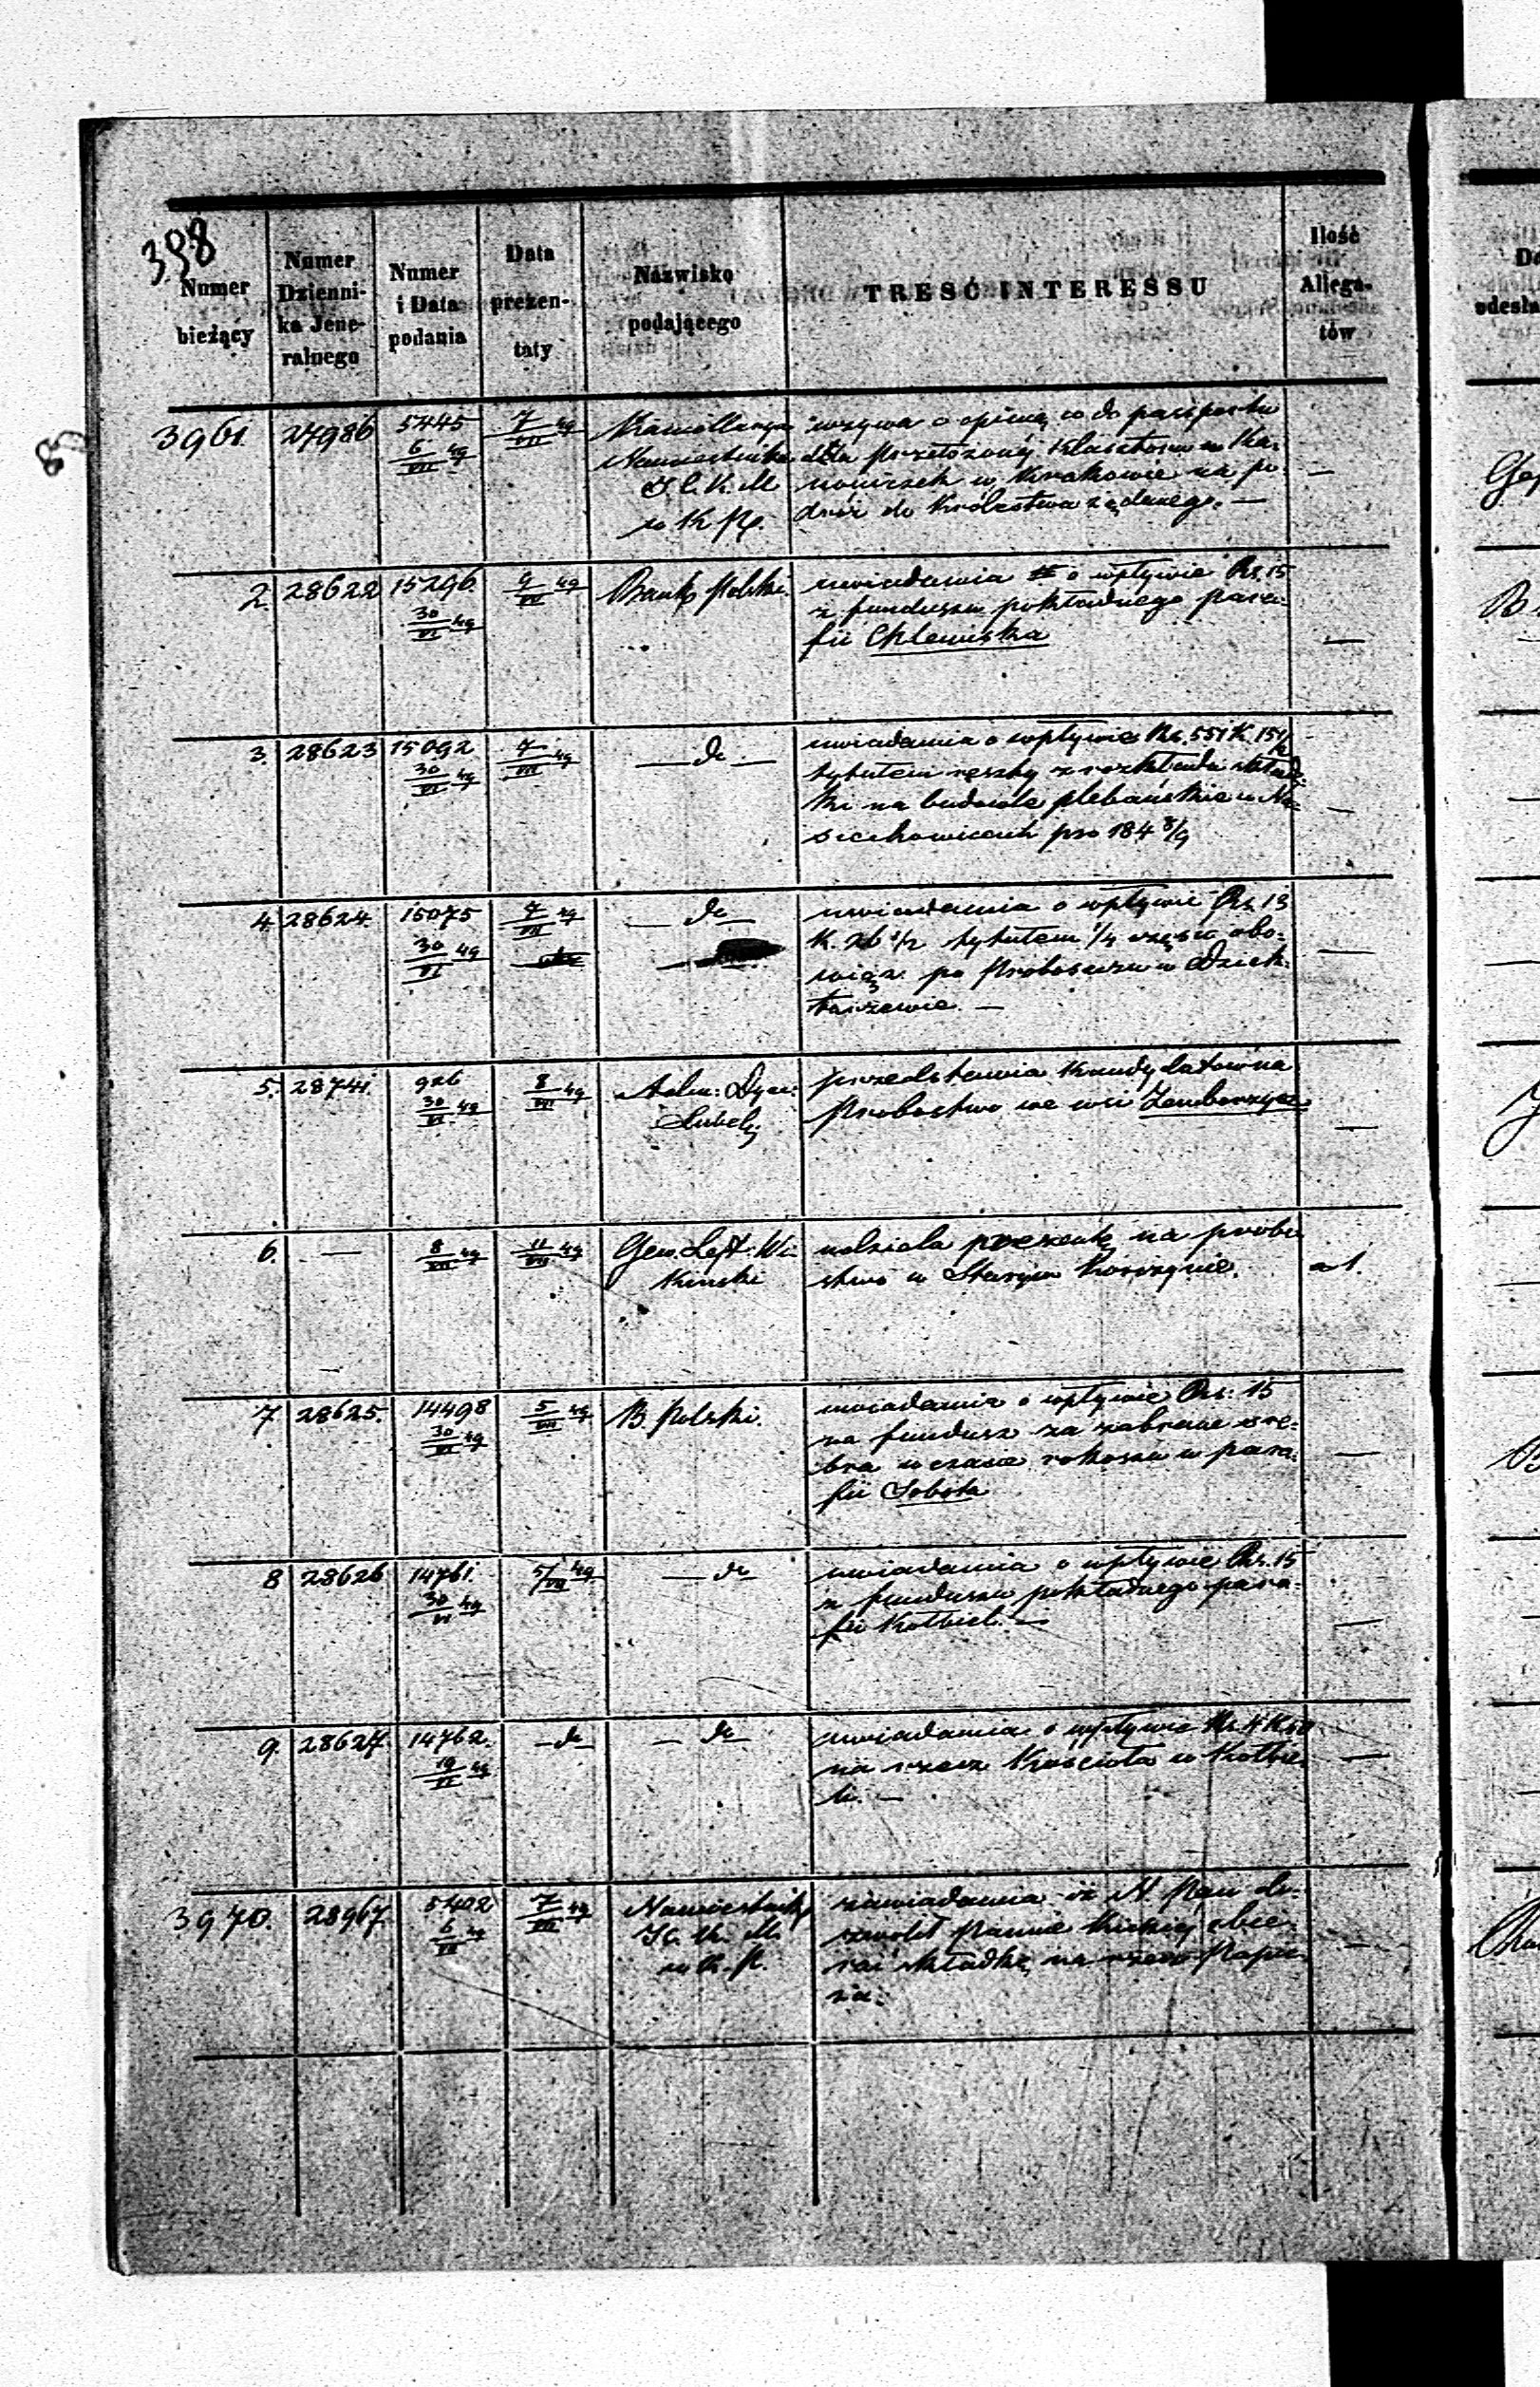 398
Numer bieżący
Numer Dzienni-ka Jene-ralnego
Numer i Data podania
Data prezen-taty
Nazwisko podającego
TREŚĆ INTERESSU
Ilość Allega-tów
3961. 27986 5445 6/VII 49 7/VII 49
Kancellarya
Namiestnika
J. C. K. M
w K P.
wzywa o opinię co do paszportu
dla Przełożonéj Klasztoru
w Krakowie na po
dróż do Królestwa żądanego. —
—
2. 28622 15296. 30/VI 49 9/VII 49
Bank Polski.
uwiadamia o wpływie Rs. 15
z funduszu pokładnego para-
fii Chlewiska
—
3. 28623 15092 30/VI 49 7/VII 49
— do —
uwiadamia o wpływie Rs. 551 K. 15 1/2
tytułem reszty z rozkładu skład-
ki na budowle plebańskie w
pro 184 8/9
—
4. 28624. 15075 30/VI 49 7/VII 49
— do —
uwiadamia o wpływie Rs. 13
K. 26 1/2 tytułem 1/4 części obo-
wiąz. po Proboszczu w Dziek-
tarzewie. —
—
5. 28741. 926 30/VI 49 8/VII 49
Adm: Dyec:
Lubel:
przedstawia Kandydatów na
Probostwo we wsi Zemborzyce
—
6. — 8/VII 49 11/VII 49
Gen. Lejt.
udziela prezentę na probo
stwo w Starym Korczynie.
1.
7. 28625. 14498 30/VI 49 5/VII 49
B. Polski.
uwiadamia o wpływie Rs: 15
na fundusz za zabrane sre-
bra w czasie rokoszu w para-
fii Sobota
—
8 28626 14761. 30/VI 49 5/VII 49
— do
uwiadamia o wpływie Rs. 15
z funduszu pokładnego para-
fii Kołbiel. —
—
9. 28627. 14762. 19/VI 49 — do —
— do —
uwiadamia o wpływie Rs. 4 K.
na rzecz Kościoła w Kołbie
li. —
—
3970. 28967. 5402 6/VII 49 7/VII 49
Namiestnik
J. C. K. M.
w K. P.
zawiadamia iż N. Pan do-
zwolił Pannie Kickiéj zbie-
rać składkę na rzecz Papie-
ża.
—